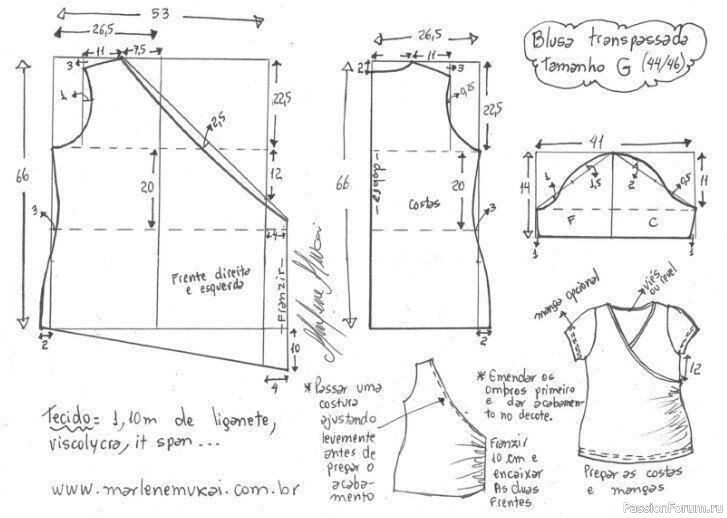 53
26,5
11
7,5
3
1
2,5
22,5
12
66
20
3
4
Frente direita
e esquerda
-Franzir-
2
10
4
Marlene Mukai
26,5
11
2
3
0,25
22,5
66
-dobra-
20
costas
3
2
Blusa transpassada
tamanho G (44/46)
41
14
11
1
1,5
2
0,5
F
C
1
1
manga opcional
viés
ou revel
12
Tecido= 1,10m de liganete,
viscolycra, it span...
www.marlenemukai.com.br
*Passar uma
costura
ajustando
levemente
antes de
pregar o
acaba-
mento
*Emendar os
ombros primeiro
e dar acabamen-
to no decote.
Franzir
10 cm e
encaixar
As duas
Frentes
Pregar as costas
e mangas
PassionForum.ru